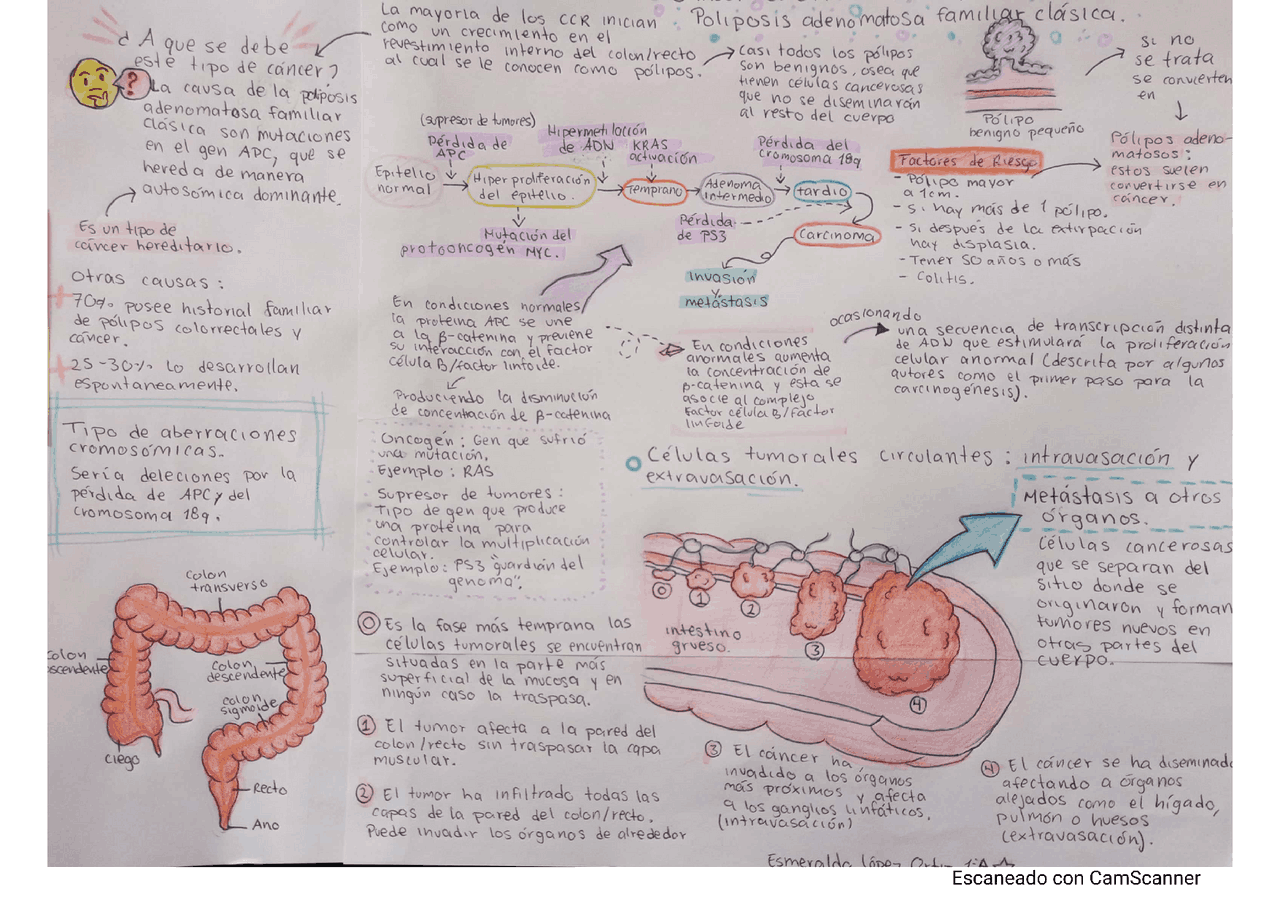 Poliposis adenomatosa familiar clásica.
¿A que se debe
este tipo de cáncer?
La causa de la poliposis
adenomatosa familiar
clásica son mutaciones
en el gen APC, que se
hereda de manera
autosómica dominante.
Es un tipo de
cáncer hereditario.
Otras causas:
70% posee historial familiar
de pólipos colorrectales y
cáncer.
25-30% lo desarrollan
espontaneamente.
Tipo de aberraciones
cromosómicas.
Sería deleciones por la
pérdida de APC y del
cromosoma 18q.
colon
transverso
colon
scendente
colon
descendente
colon
sigmoide
ciego
Recto
Ano
La mayoría de los CCR inician
como un crecimiento en el
revestimiento interno del colon/recto
al cual se le conocen como pólipos.
casi todos los pólipos
son benignos, osea que
tienen células cancerosas
que no se diseminarán
al resto del cuerpo
Pólipo
benigno pequeño
si no
se trata
se convierten
en
Pólipos adeno-
matosos:
estos suelen
convertirse en
cáncer.
Factores de Riesgo
- Pólipo mayor
a 1cm.
- Si hay más de 1 pólipo.
- Si después de la extirpación
hay displasia.
- Tener 50 años o más
- Colitis.
(supresor de tumores)
Pérdida de
APC
Hipermetilocción
de ADN
KRAS
activación
Pérdida del
cromosoma 18q
Epitelio
normal
Hiperproliferación
del epitelio.
Temprano
Adenoma
intermedio
tardío
Mutación del
protooncogén MYC.
Pérdida
de PS3
Carcinoma
invasión
y
metástasis
En condiciones normales
la proteína APC se une
a la β-catenina y previene
su interacción con el factor
célula B/factor linfoide.
Produciendo la disminución
de concentración de β-catenina
En condiciones
anormales aumenta
la concentración de
β-catenina y esta se
asocie al complejo
Factor célula B/Factor
linfoide
ocasionando
una secuencia de transcripción distinta
de ADN que estimulará la proliferación
celular anormal (descrita por algunos
autores como el primer paso para la
carcinogénesis).
Oncogén: Gen que sufrió
una mutación.
Ejemplo: RAS
Supresor de tumores:
Tipo de gen que produce
una proteína para
controlar la multiplicación
celular.
Ejemplo: PS3 "guardián del
genoma".
Células tumorales circulantes: intravasación y
extravasación.
Metástasis a otros
órganos.
Células cancerosas
que se separan del
sitio donde se
originaron y forman
tumores nuevos en
otras partes del
cuerpo.
intestino
grueso.
0
1
2
3
4
0 Es la fase más temprana las
células tumorales se encuentran
situadas en la parte más
superficial de la mucosa y en
ningún caso la traspasa.
1 El tumor afecta a la pared del
colon/recto sin traspasar la capa
muscular.
2 El tumor ha infiltrado todas las
capas de la pared del colon/recto.
Puede invadir los órganos de alrededor
3 El cáncer ha
invadido a los órganos
más próximos y afecta
a los ganglios linfáticos.
(intravasación)
4 El cáncer se ha diseminado
afectando a órganos
alejados como el hígado,
pulmón o huesos
(extravasación).
Esmeralda López
Escaneado con CamScanner